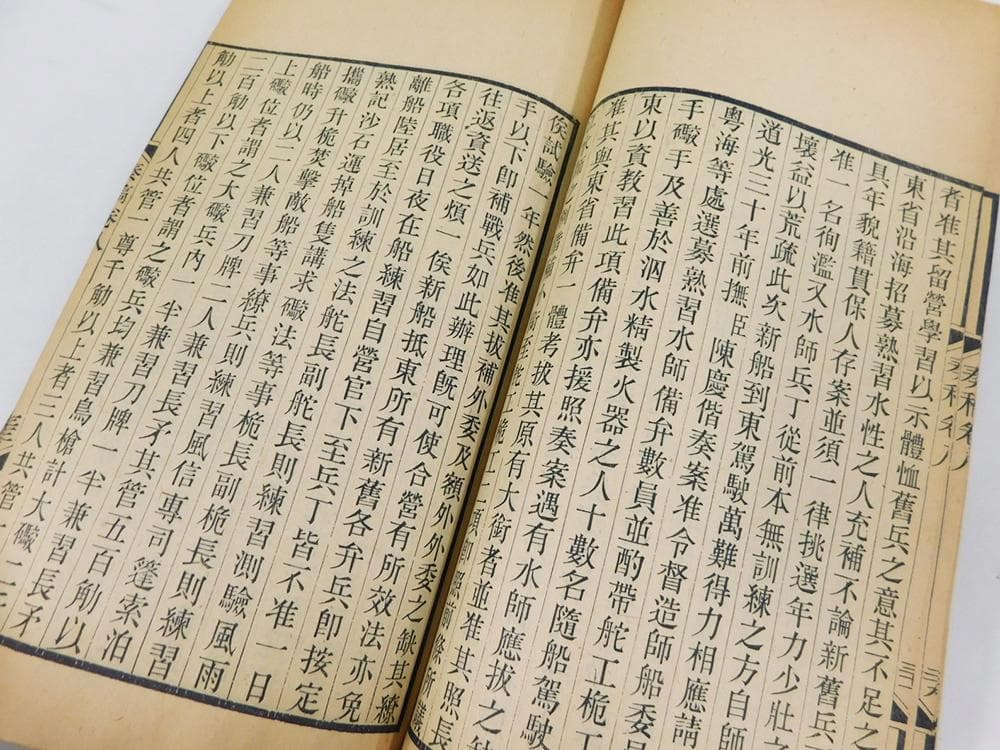 者准其留營學習以示體恤舊兵之意其不足之
東省沿海招募熟習水性之人充補不論新舊兵
具年貌籍貫保人存案並須一律挑選年力少壯之
准一名徇濫又水師兵丁從前本無訓練之方自師
壞益以荒疏此次新船到東駕駛萬難得力相應請
道光三十年前撫臣陳慶偕奏案准令督造師船委
粵海等處選募熟習水師備弁數員並酌帶舵工桅工
手礮手及善於泅水精製火器之人十數名隨船駕駛
東以資教習此項備弁亦援照奏案遇有水師應拔之
准其與東省備弁一體考拔其原有大銜者並准其照長
俟試驗一年然後准其拔補外委及額外外委之缺其繚
手以下即補戰兵如此辦理既可使合營有所效法亦免
往返資送之煩一俟新船抵東所有新舊各弁兵即按定
各項職役日夜在船練習自營官下至兵丁皆不准一日
離船陸居至於訓練之法舵長副舵長則練習測驗風雨
熟記沙石運掉船隻講求礮法等事桅長副桅長則練習
攜礮升桅焚擊敵船等事繚兵則練習風信專司篷索泊
船時仍以二人兼習刀牌二人兼習長矛其管五百觔以
上礮位者謂之大礮兵內一半兼習刀牌一半兼習長矛
二百觔以下礮位者謂之礮兵均兼習鳥槍計大礮
觔以上者四人共管一尊千觔以上者三人共管一
奏稿卷八